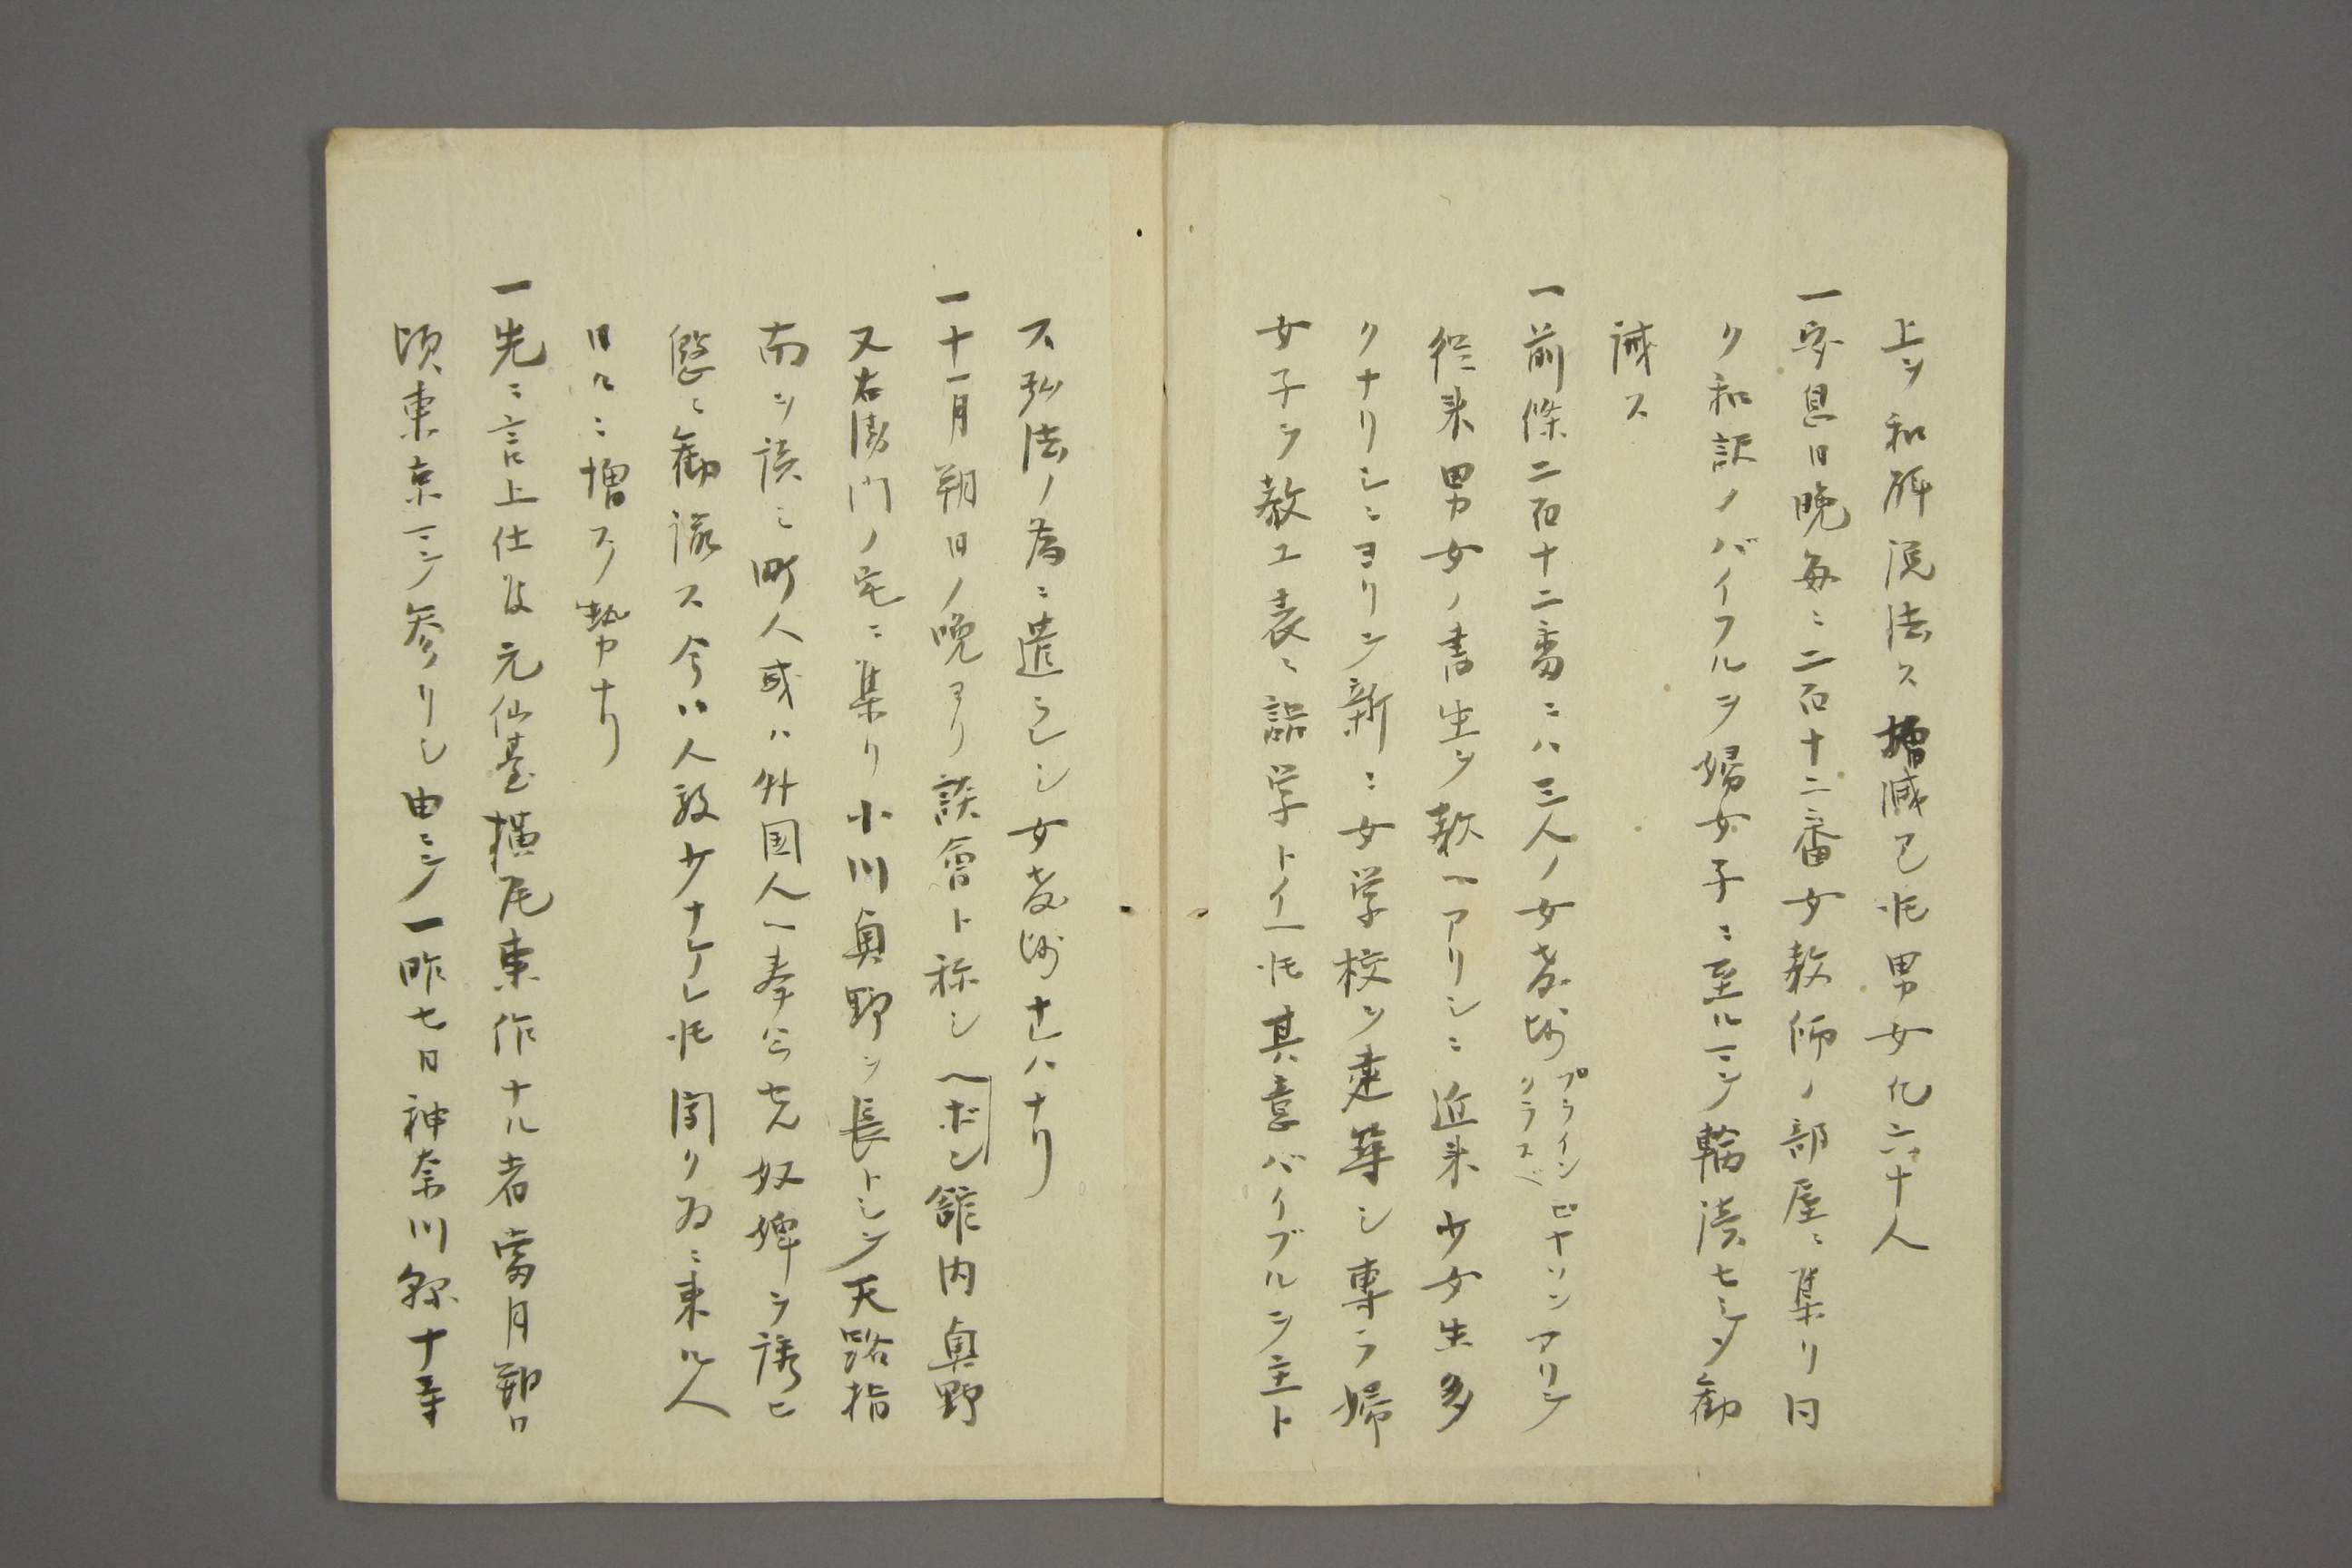 上ヲ和解説法ス増減アレ𪜈男女凡二三十人
一安息日晩毎ニ二百十二番女教師ノ部屋ニ集リ同
ク和訳ノバイフルヲ婦女子ニ至ルマテ輪読セシメ勧
誡ス
一前條二百十二番ニハ三人ノ女教師プラインピヤソンクラスベアリテ
従来男女ノ書生ヲ教ヘアリシニ近来少女生多
クナリシニヨリテ新ニ女学校ヲ建築シ専ラ婦
女子ヲ教エ表ニ語学トイヘ𪜈其意バイブルヲ主ト
ス弘法ノ為ニ遣ラレシ女教師ナレハナリ
一十一月朔日ノ晩ヨリ談會ト称シヘボン舘内奥野
又右衛門ノ宅ニ集リ小川奥野ヲ長トシテ天路指
南ヲ読ミ町人或ハ外国人ヘ奉公セル奴婢ヲ誘ヒ
慇ニ勧諭ス今ハ人数少ナケレ𪜈聞クタメニ来ル人
日々ニ増ス勢ナリ
一先ニ言上仕候元仙臺横尾東作ナル者當月朔日
頃東京マテ参リシ由ニテ一昨七日神奈川縣十等